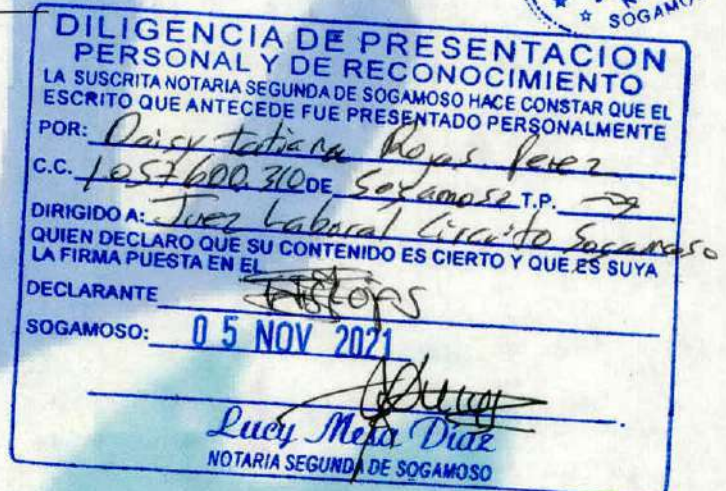 SOGAMO
DILIGENCIA DE PRESENTACION
PERSONAL Y DE RECONOCIMIENTO
LA SUSCRITA NOTARIA SEGUNDA DE SOGAMOSO HACE CONSTAR QUE EL
ESCRITO QUE ANTECEDE FUE PRESENTADO PERSONALMENTE
POR: Daisy tatiana Rojas Perez
C.C. 1057600.310 DE Sogamoso T.P.
DIRIGIDO A: Juez Laboral Circuito Sogamoso
QUIEN DECLARO QUE SU CONTENIDO ES CIERTO Y QUE ES SUYA
LA FIRMA PUESTA EN EL
DECLARANTE
SOGAMOSO: 05 NOV 2021
Lucy Mesa Díaz
NOTARIA SEGUNDA DE SOGAMOSO